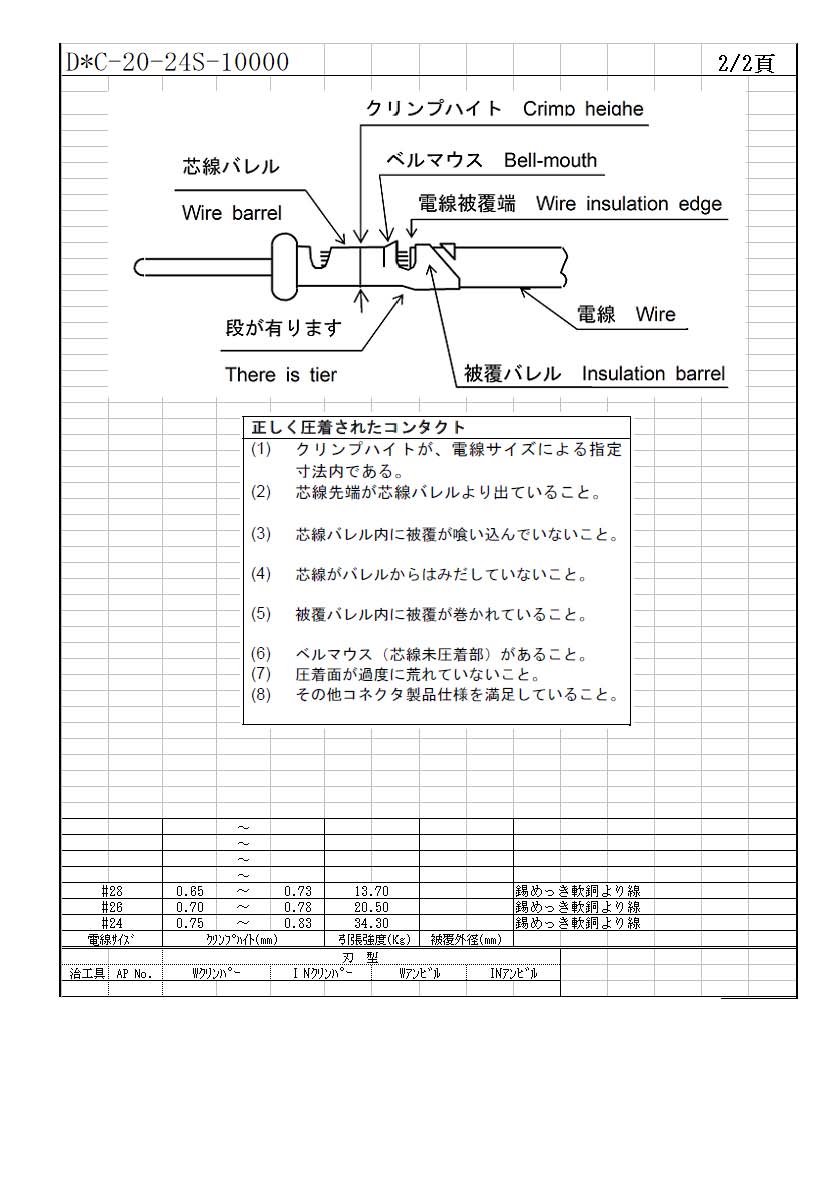 D*C-20-24S-10000
2/2頁
クリンプハイト Crimp heighe
芯線バレル
Wire barrel
ベルマウス Bell-mouth
電線被覆端 Wire insulation edge
段が有ります
There is tier
電線 Wire
被覆バレル Insulation barrel
正しく圧着されたコンタクト
(1) クリンプハイトが、電線サイズによる指定
寸法内である。
(2) 芯線先端が芯線バレルより出ていること。
(3) 芯線バレル内に被覆が喰い込んでいないこと。
(4) 芯線がバレルからはみだしていないこと。
(5) 被覆バレル内に被覆が巻かれていること。
(6) ベルマウス（芯線未圧着部）があること。
(7) 圧着面が過度に荒れていないこと。
(8) その他コネクタ製品仕様を満足していること。
～
～
～
～
#28 0.65 ～ 0.73 13.70 錫めっき軟銅より線
#26 0.70 ～ 0.78 20.50 錫めっき軟銅より線
#24 0.75 ～ 0.83 34.30 錫めっき軟銅より線
電線ｻｲｽﾞ ｸﾘﾝﾌﾟﾊｲﾄ(mm) 引張強度(Kg) 被覆外径(mm)
刃 型
治工具 AP No. Wｸﾘﾝﾊﾟｰ INｸﾘﾝﾊﾟｰ Wｱﾝﾋﾞﾙ INｱﾝﾋﾞﾙ